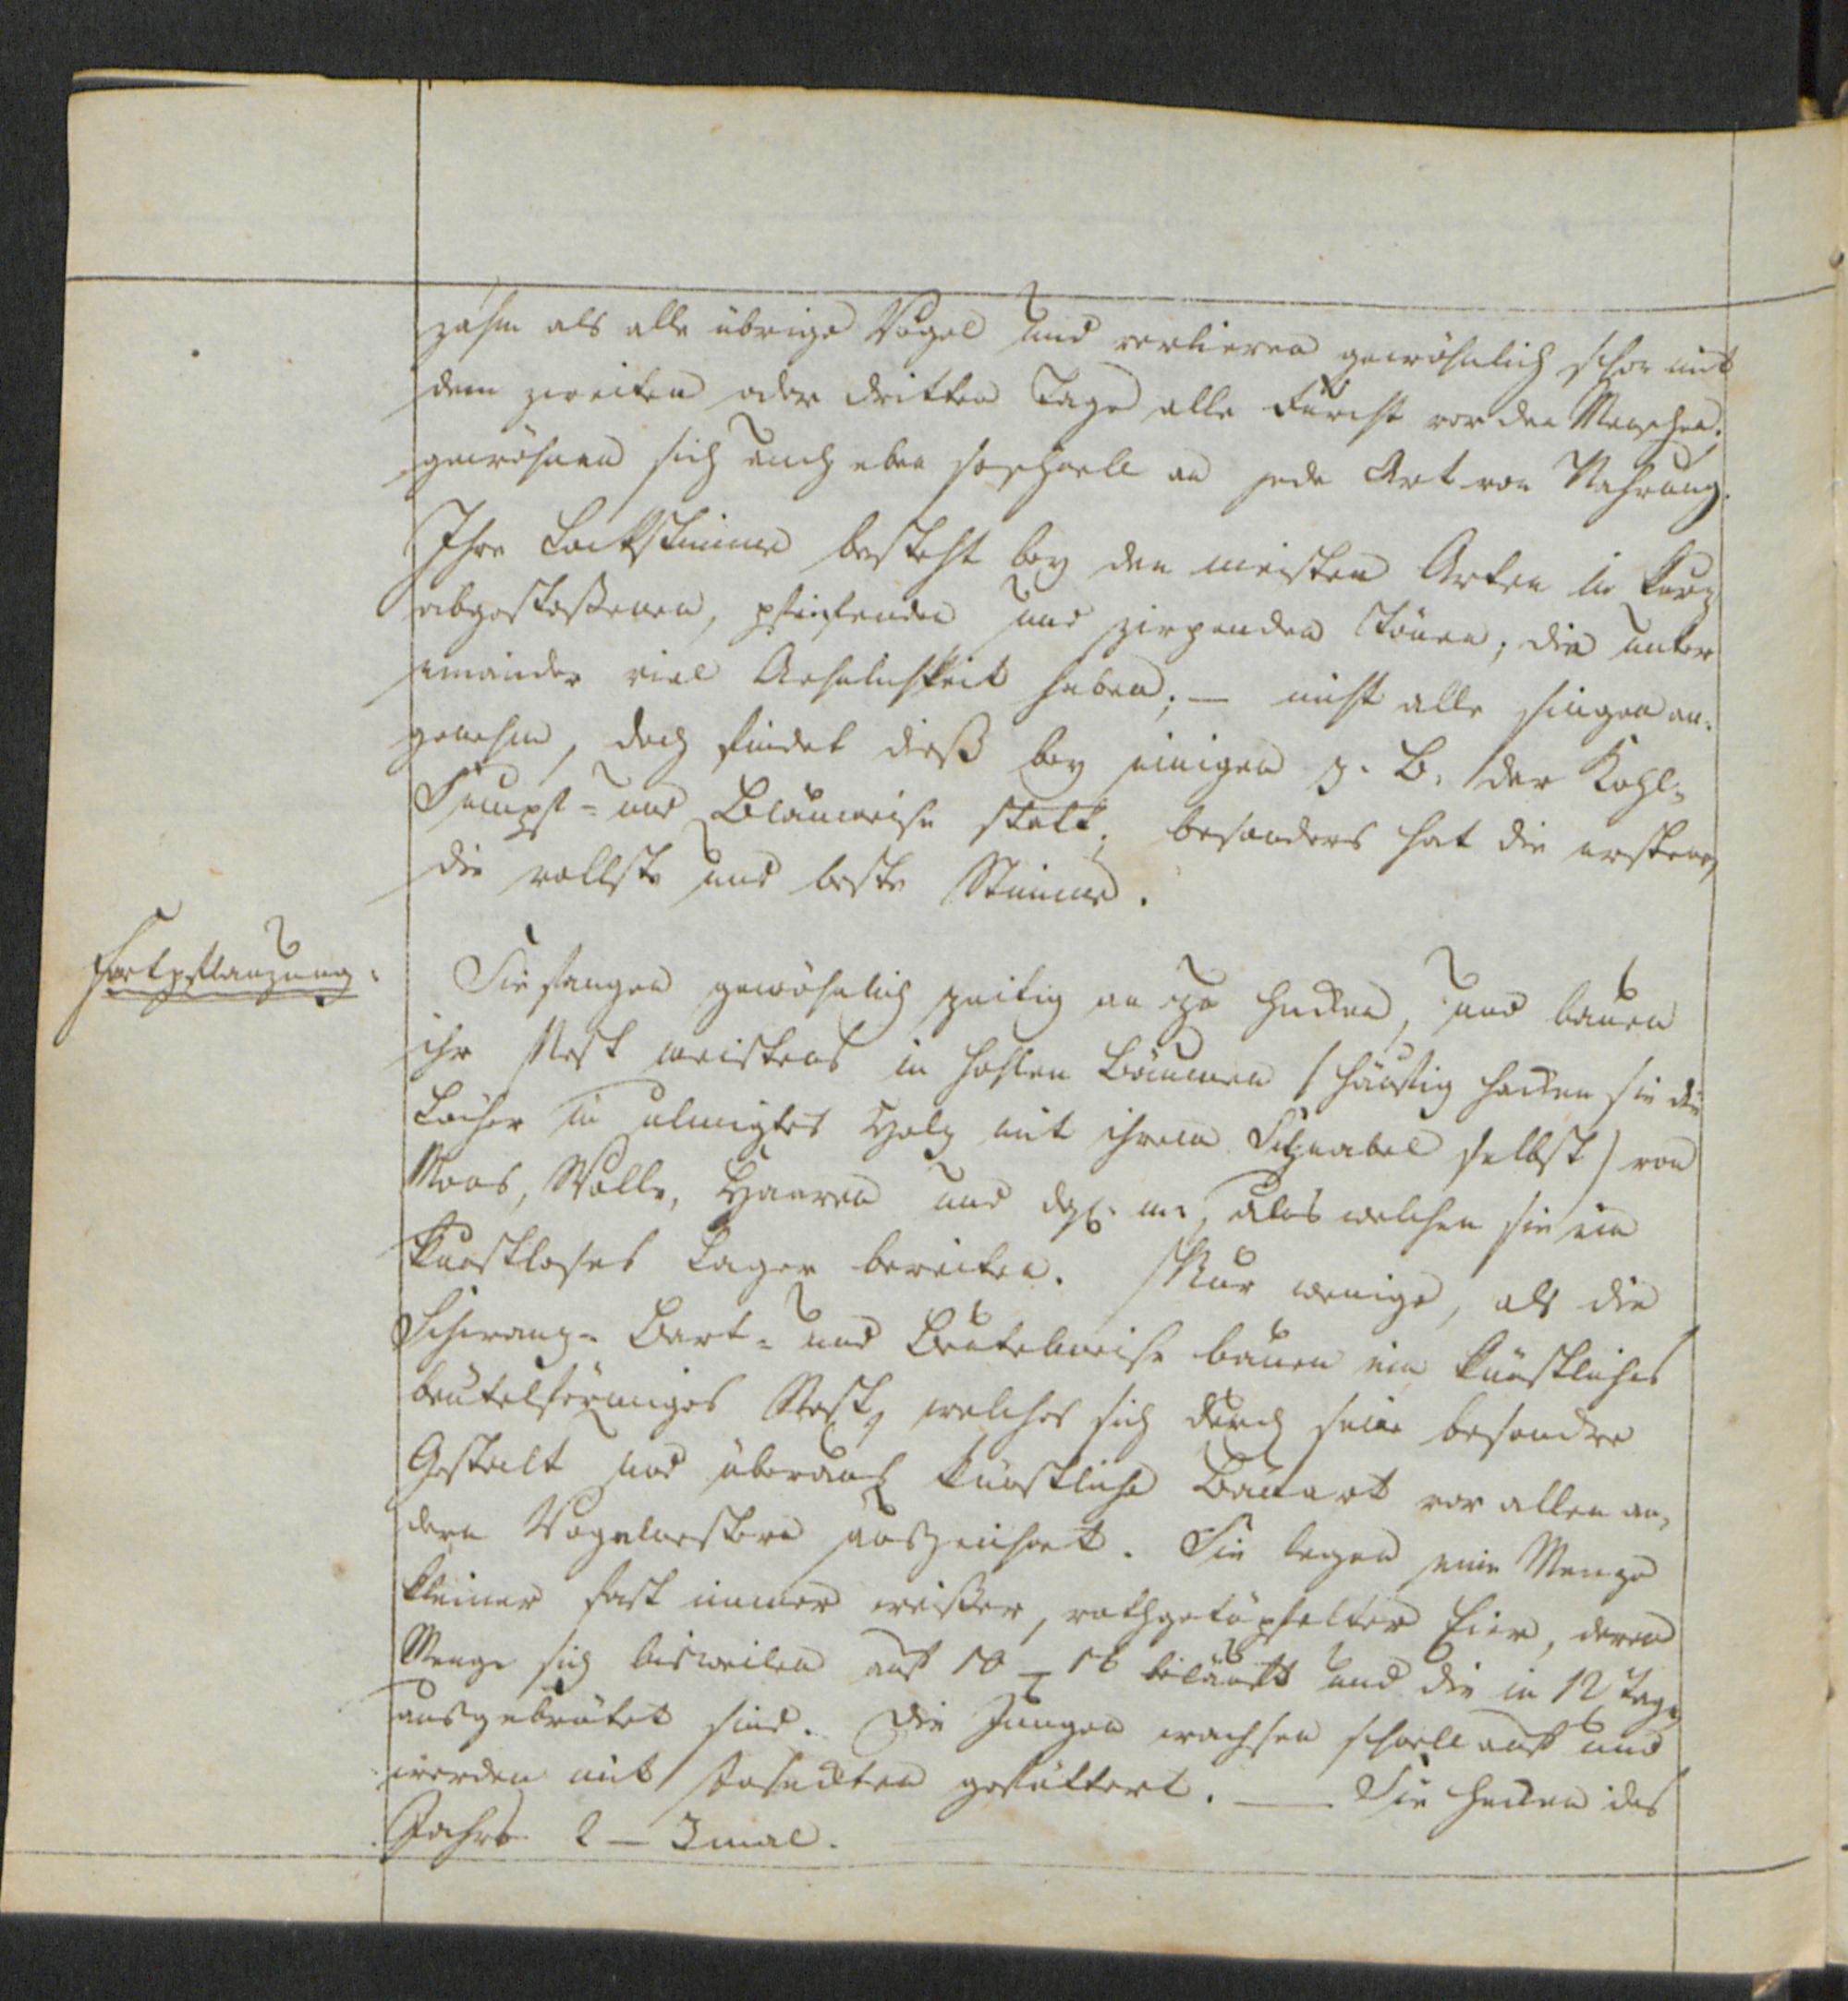 zahm als alle übrige Vögel und verlieren gewöhnlich schon mit
dem zweiten oder dritten Tage alle Furcht vor den Menschen.
gewöhnen sich auch eben so schnell an jede Art von Nahrung.
Ihre Lockstimme besteht bey den meisten Arten in kurz
abgestoßenen, pfeifenden und zirpenden Tönen; die unter
einander viel Aehnlichkeit haben; — nicht alle singen an-
genehm, doch findet dieß bey einigen z. B. der Kohl-
Sumpf- und Blaumeise statt, besonders hat die erstere
die vollste und beste Stimme.
Fortpflanzung.
Sie fangen gewöhnlich zeitig an zu hecken, und bauen
ihr Nest meistens in hohlen Bäumen (häufig hacken sie die
Löcher in ulmigtes Holz mit ihrem Schnabel selbst) von
Moos, Wolle, Haaren und dgl. m., aus welchen sie ein
kunstloses Lager bereiten. Nur wenige, als die
Schwanz- Bart- und Beutelmeise bauen ein künstliches
beutelförmiges Nest, welches sich durch seine besondre
Gestalt und überaus künstliche Bauart vor allen an-
dern Vogelnestern auszeichnet. Sie legen eine Menge
kleiner fast immer weißer, rothgetüpfelter Eier, deren
Menge sich bisweilen auf 10 – 16 beläuft und die in 12 Tage
ausgebrütet sind. Die Jungen wachsen schnell auf und
werden mit Insekten gefüttert. — Sie hecken des
Jahrs 2 – 3 mal.